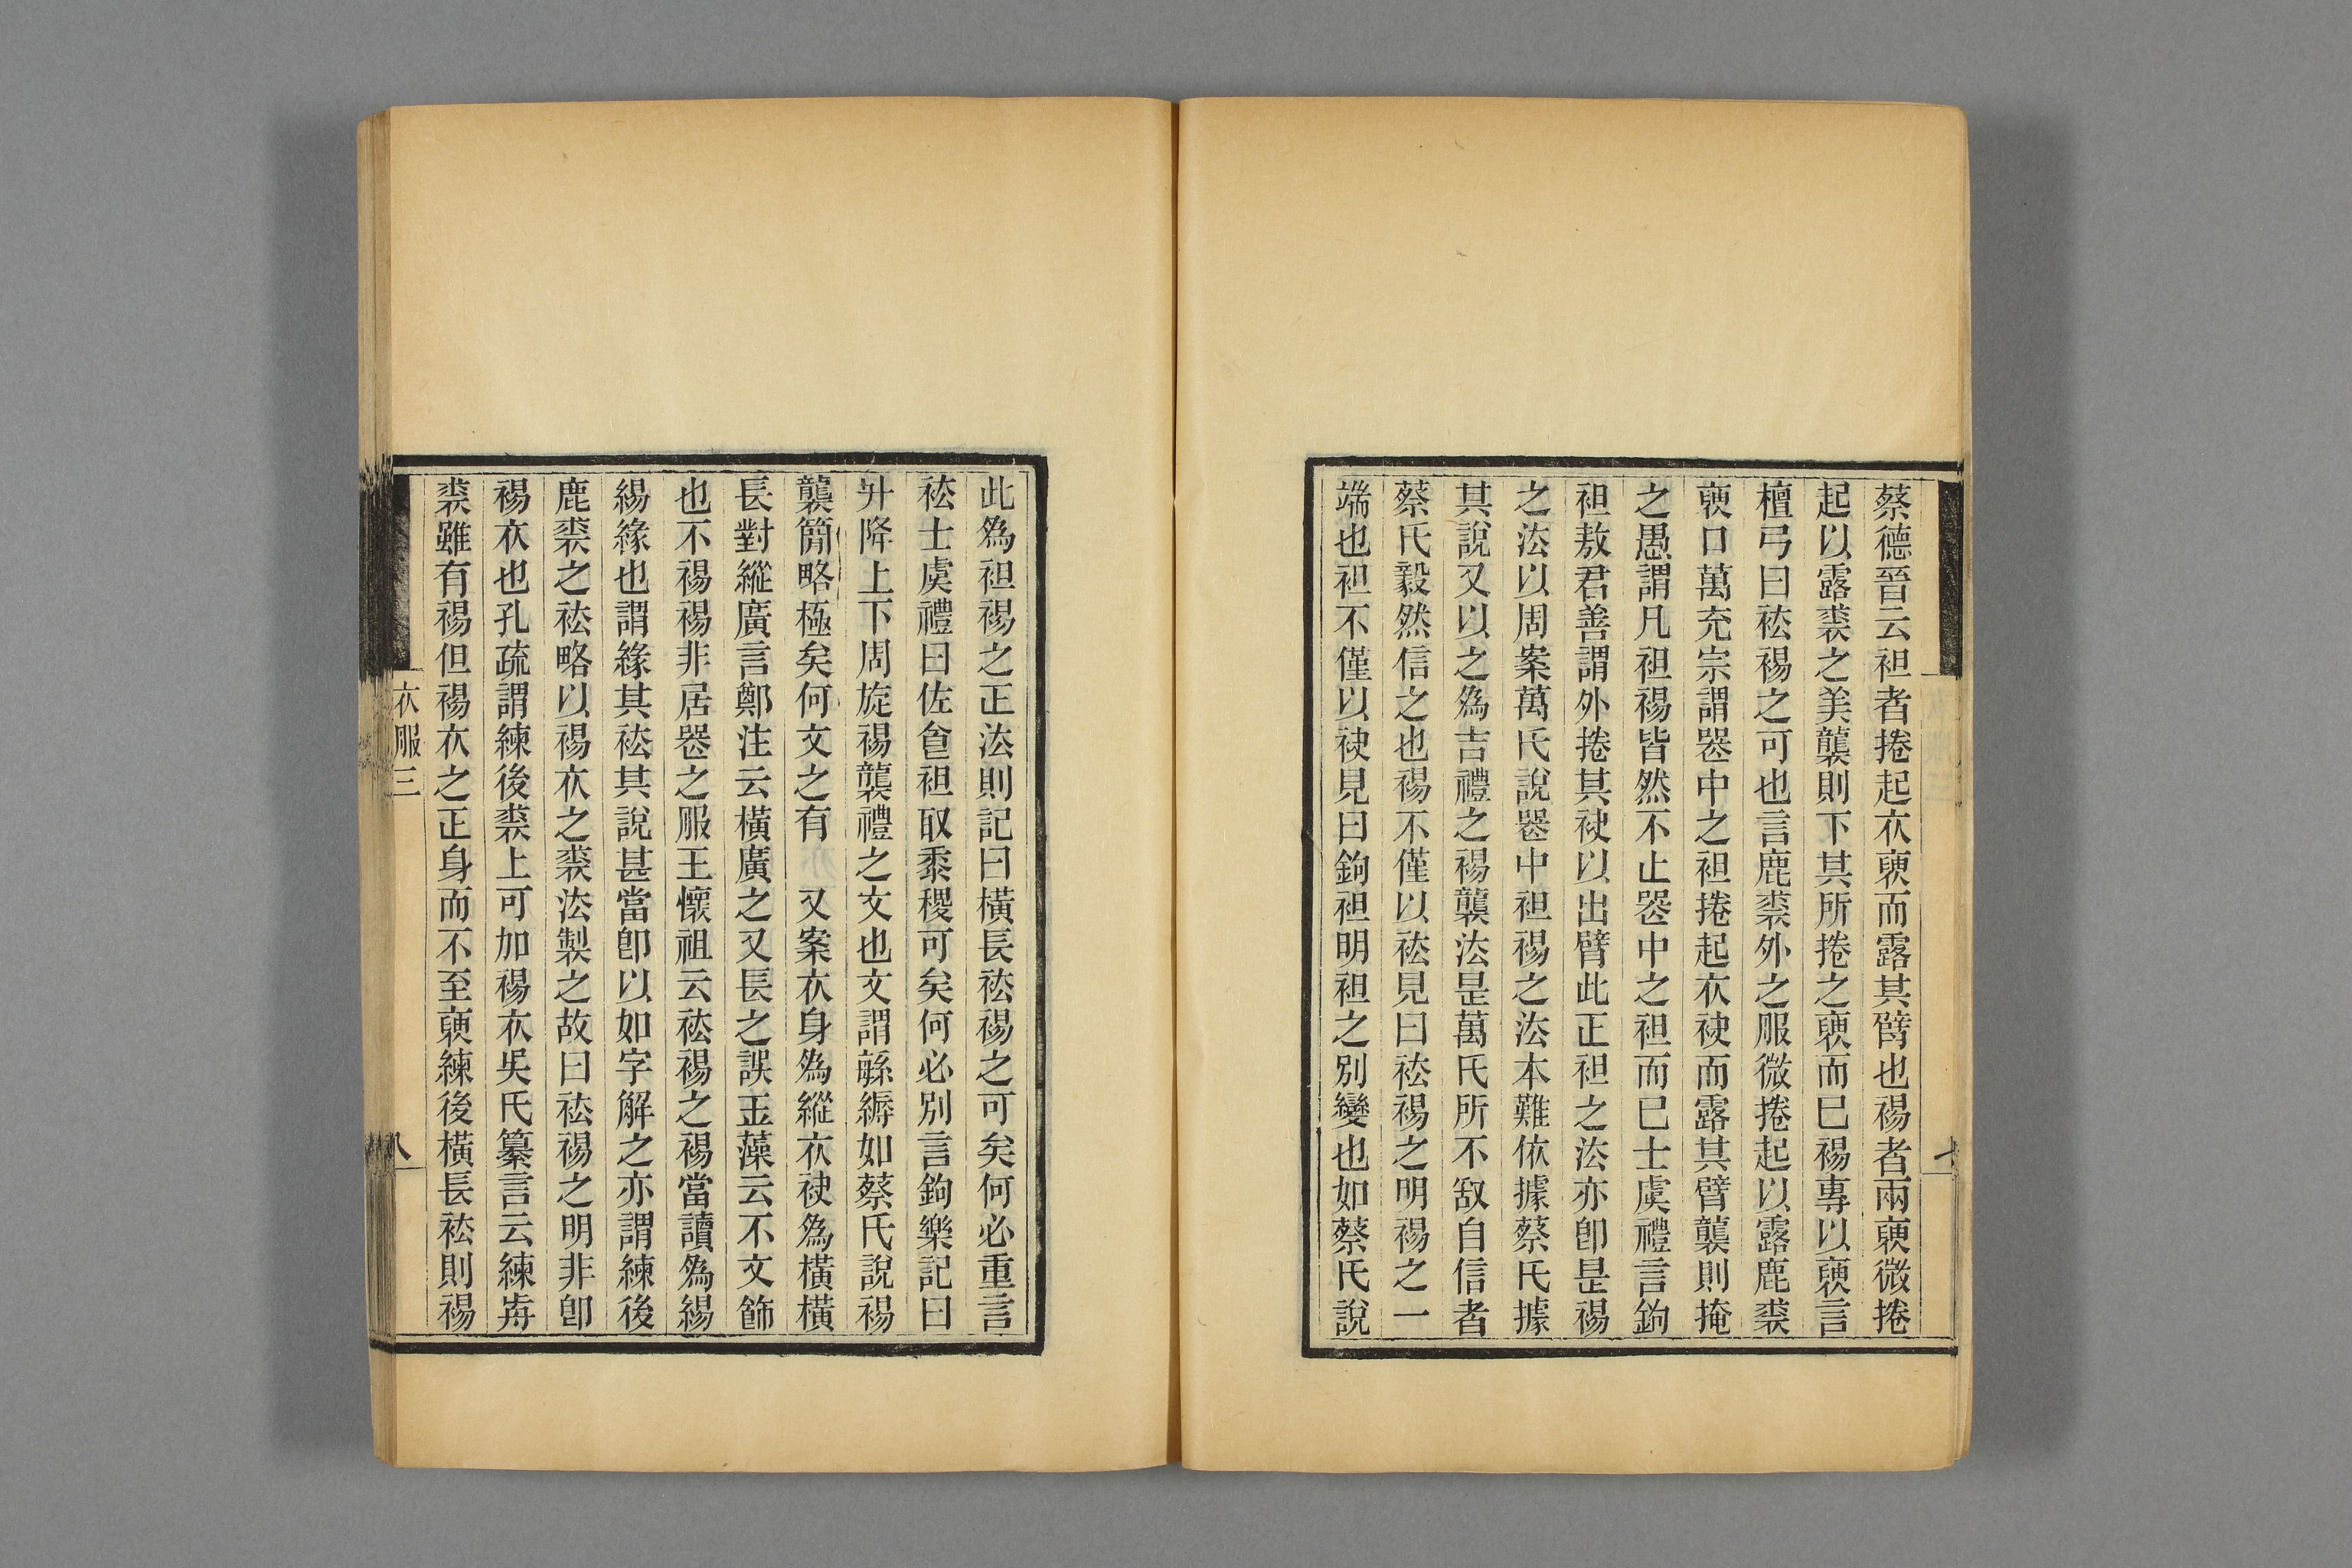 蔡德晉云袒者捲起衣褎而露其臂也裼者兩褎微捲
起以露裘之美襲則下其所捲之褎而已裼專以褎言
檀弓曰袪裼之可也言鹿裘外之服微捲起以露鹿裘
褎口萬充宗謂喪中之袒捲起衣袂而露其臂襲則掩
之愚謂凡袒裼皆然不止喪中之袒而已士虞禮言鉤
袒敖君善謂外捲其袂以出臂此正袒之法亦卽是裼
之法以周案萬氏說喪中袒裼之法本難依據蔡氏據
其說又以之爲吉禮之裼襲法是萬氏所不敢自信者
蔡氏毅然信之也裼不僅以袪見曰袪裼之明裼之一
端也袒不僅以袂見曰鉤袒明袒之別變也如蔡氏說
七
此爲袒裼之正法則記曰橫長袪裼之可矣何必重言
袪士虞禮曰佐食袒取黍稷可矣何必別言鉤樂記曰
升降上下周旋裼襲禮之文也文謂緐縟如蔡氏說裼
襲簡略極矣何文之有　又案衣身爲縱衣袂爲橫橫
長對縱廣言鄭注云橫廣之又長之誤玉藻云不文飾
也不裼裼非居喪之服王懷祖云袪裼之裼當讀爲緆
緆緣也謂緣其袪其說甚當卽以如字解之亦謂練後
鹿裘之袪略以裼衣之裘法製之故曰袪裼之明非卽
裼衣也孔疏謂練後裘上可加裼衣吳氏纂言云練
裘雖有裼但裼衣之正身而不至褎練後橫長袪則裼
衣服三
八